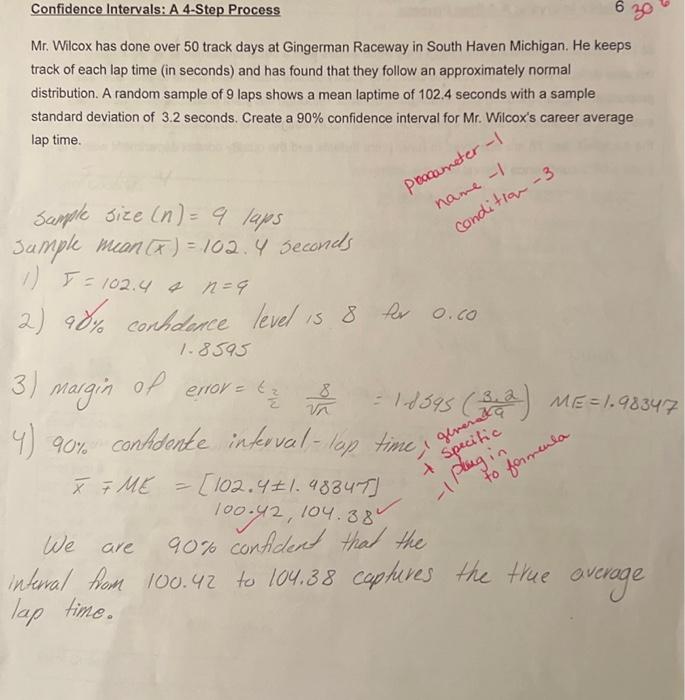 Confidence Intervals: A 4-Step Process
6 30
Mr. Wilcox has done over 50 track days at Gingerman Raceway in South Haven Michigan. He keeps
track of each lap time (in seconds) and has found that they follow an approximately normal
distribution. A random sample of 9 laps shows a mean laptime of 102.4 seconds with a sample
standard deviation of 3.2 seconds. Create a 90% confidence interval for Mr. Wilcox's career average
lap time.
parameter -1
name -1
condition -3
Sample size (n) = 9 laps
Sample mean (x̄) = 102.4 seconds
1) x̄ = 102.4 & n = 9
2) 90% confidence level is 8 for 0.60
1.8595
3) margin of error = t 2/2 8/√n = 1.8595 (3.2/√9) ME = 1.98347
4) 90% confidente interval - lap time
general
+ specific
-1 plug in
to formula
x̄ ∓ ME = [102.4 ± 1.98347]
100.42, 104.38
We are 90% confident that the
interval from 100.42 to 104.38 captures the true average
lap time.